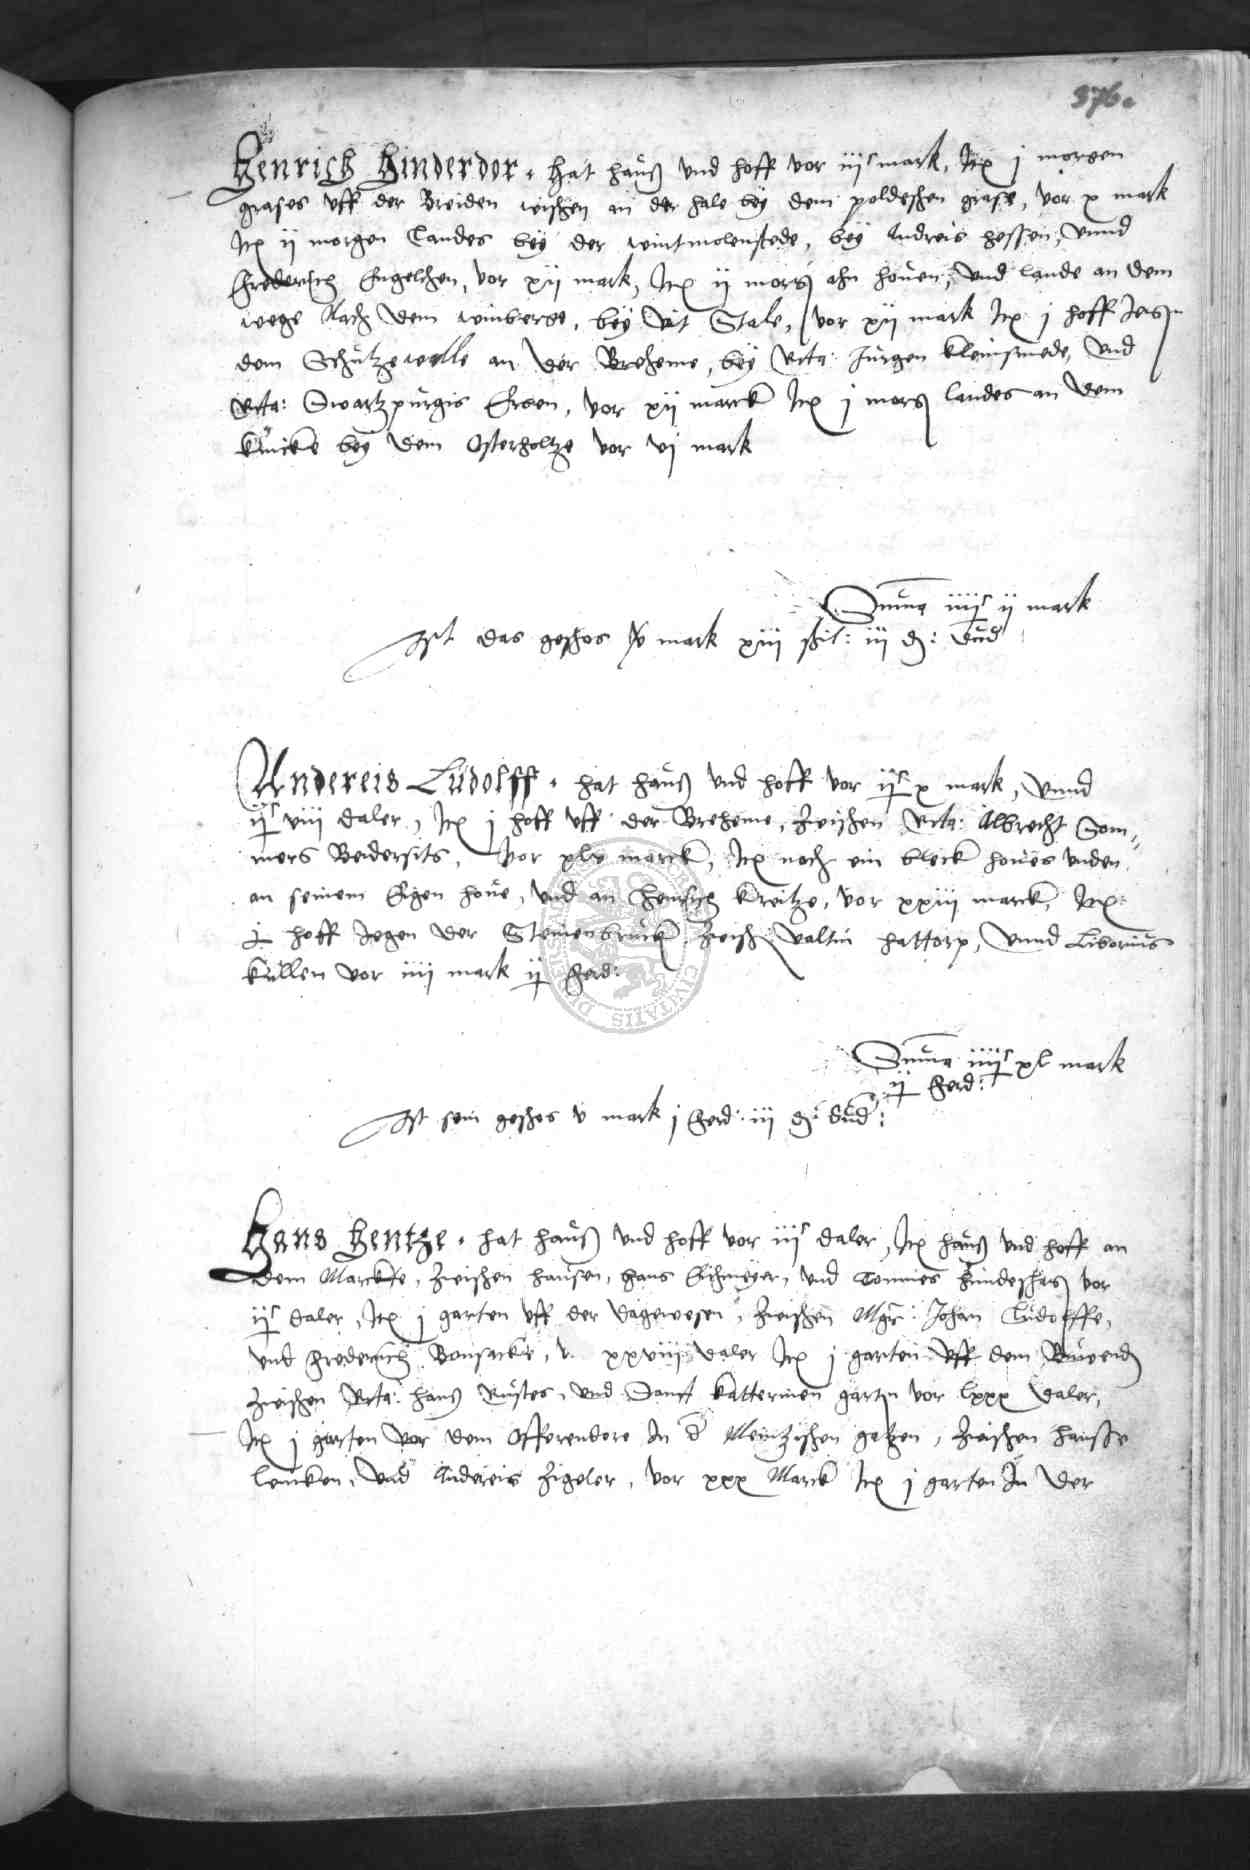 376.
Henrich Hinderdor . Hat hauß vnd hoff vor iiijc mark, Itx j morgen
grases vff der Breiden wischen an der hale bey dem poldeschen grase, vor x mark
Itx ij morgen Landes bey der wintmolenstede, bey Andreis hessen, vnnd
Frederich Engelchen, vor xij mark, Itx ij morg ahn houen, vnd lande an dem
wege Nach dem winberge, bey Vit Stale, vor xij mark Itx j hoff Jegn
dem Schutzewalle an der Breheme, bey Rcta: Jurgen kleinsmede, vnd
Rcta: Swartzpurgis Erben, vor xij marck Itx j morg landes an dem
krucke bey dem Osterholtze vor vj mark
Suma iiijc ij mark
Ist das geschos v mark xiij schil: iij d: Dud
Andereis Ludolff . hat hauß vnd hoff vor ijc x mark, vnnd
ijc viij daler, Itx j hoff vff der Breheme, Zwischen Rcta: Albrecht Som=
mers Beidersits, vor xlv marck, Itx noch ein bleck houes vnden
an seinem Eigen houe, vnd an Henrich kreitze, vor xxiij marck, Itx
j hoff Jegen der Steinenbruck Zwisch Valtin hattorp, vnnd Liborius
kullen vor iiij mark ij ferd:
Suma iiijc xl mark
ij ferd:
Ist sein geschos v mark j ferd: iij d: Dud:
Hans Hentze . hat hauß vnd hoff vor iijc daler, Itx hauß vnd hoff an
dem Marckte, Zwischen hausen, hans Eschmeyer, vnd Tonnies vor
ijc daler, Itx j garten vff der dagewesen, Zwischen Mgr: Johan Ludolffe,
vnd Frederich Bonsacke, v. xxviij daler Itx j garten vff dem
Zwischen Rcta: hans Rustes, vnd Sanct kattermen gartn vor lxxx daler,
Itx j garten vor dem Offerendore In d Meintzischen gaßen, Zwischen hansse
lencken, vnd Andereis Zigeler, vor xxx Marck Itx j garten In der
CIVITATIS